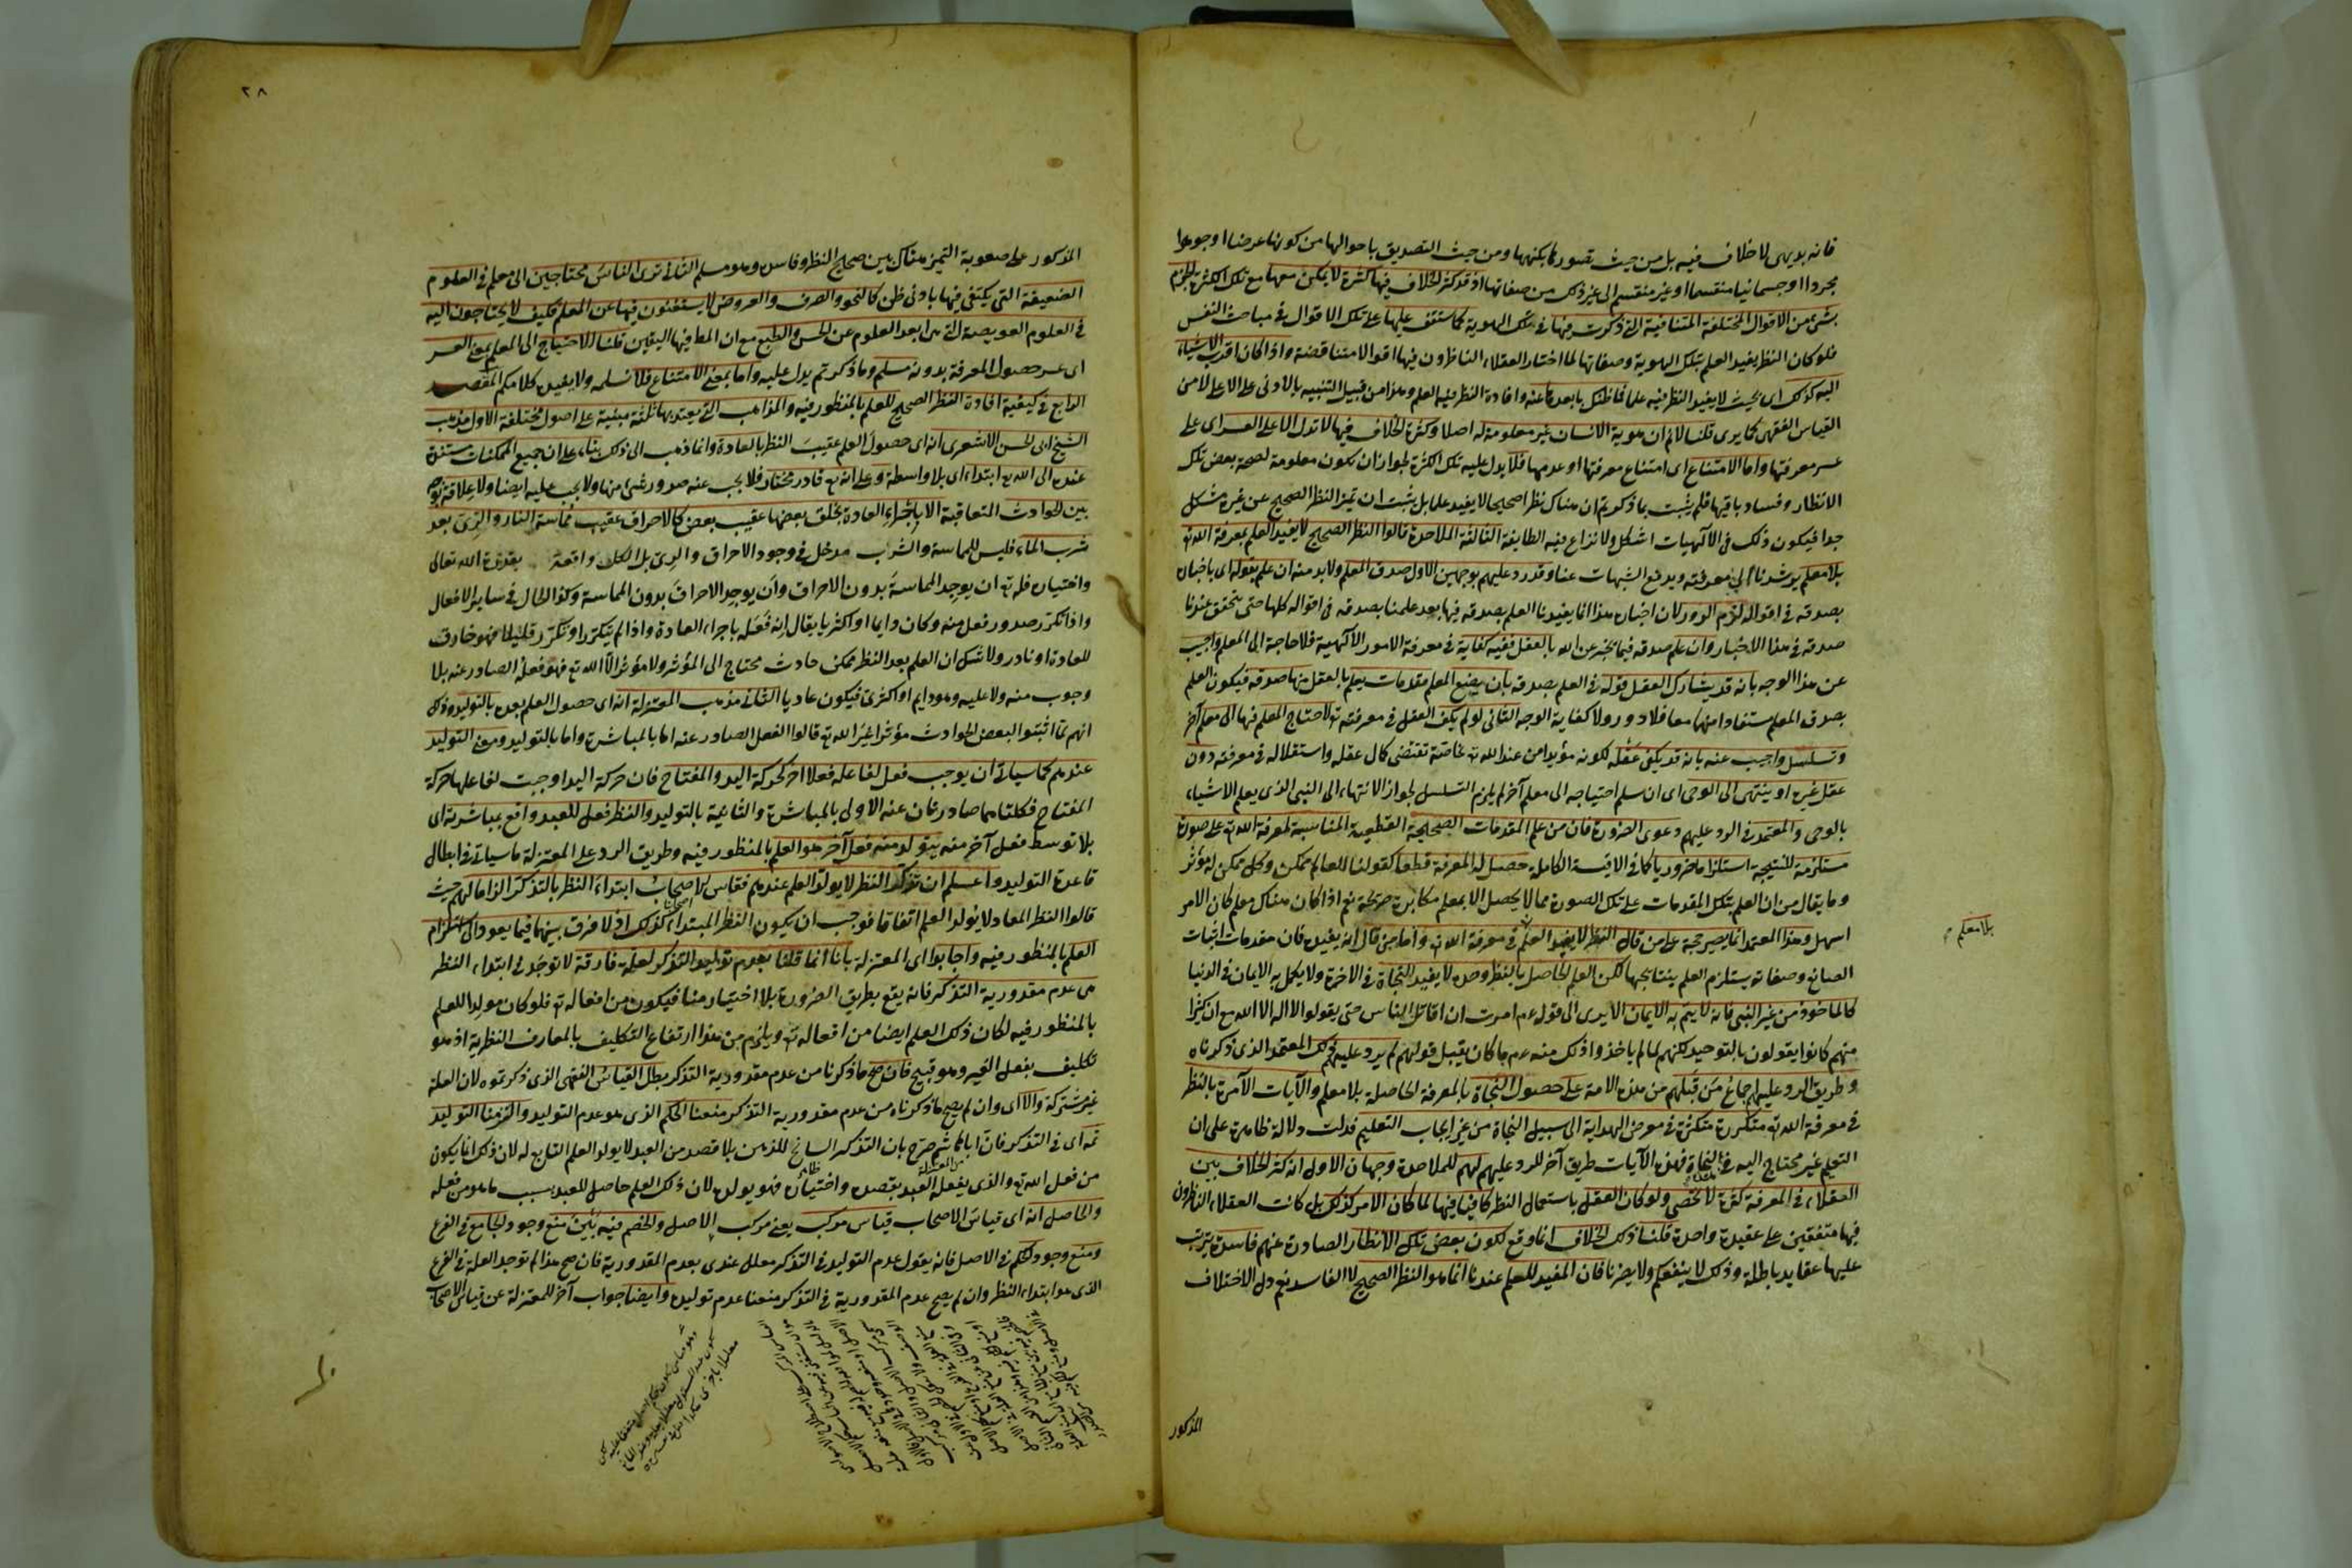 فانه بديهى لا خلاف فيه بل من حيث تصورها بكنهها ومن حيث التصديق باحوالها من كونها عرضا او جوهرا
مجردا او جسمانيا منقسما او غير منقسم الى غير ذلك من صفاتها اذ قد كثر الخلاف فيها كثرة لا يمكن معها مع تلك الكثرة الجزم
بشئ من الاقوال المختلفة المتنافية التى ذكرت منها فى تلك الهوية كما ستقف عليها على تلك الاقوال فى مباحث النفس
فلو كان النظر يفيد العلم بتلك الهوية وصفاتها لما اختار العقلاء الناظرون فيها اقوالا متناقضة واذا كان اقرب الاشياء
اليه كذلك اى بحيث لا يفيد النظر فيه علما فما ظنك بابعدها عنه وافادة النظر فيه العلم وهذا من قبيل التنبيه بالادنى على الاعلى لا من
القياس الفقهى كما يرى قلنا لانم ان هوية الانسان غير معلومة له اصلا وكثرة الخلاف فيها لا تدل الا على العسر اى على
عسر معرفتها واما الامتناع اى امتناع معرفتها او عدمها فلا يدل عليه تلك الكثرة لجواز ان يكون معلومة لصحة بعض تلك
الانظار وفساد باقيها فلم يثبت بما ذكرتم ان هناك نظرا صحيحا لا يفيد علما بل يثبت ان تميز النظر الصحيح عن غيره مشكل
جدا فيكون ذلك فى الآلهيات اشكل ولا نزاع فيه الطايفة الثالثة الملاحدة قالوا النظر الصحيح لا يفيد العلم بمعرفة الله تع
بلا معلم يرشدنا الى معرفته ويدفع الشبهات عنا وقد رد عليهم بوجهين الاول صدق المعلم ولابد منه ان علم بقوله اى باخباره
بصدقه فى اقواله لزم الدور لان اخباره هذا انما يفيدنا العلم بصدقه فيها بعد علمنا بصدقه فى اقواله كلها حتى يتحقق عندنا
صدقه فى هذا الاخبار وان علم صدقه فيما يخبر عن الله بالعقل ففيه كفاية فى معرفة الامور الآلهية فلا حاجة الى المعلم واجيب
عن هذا الوجه بانه قد يشارك العقل قوله فى العلم بصدقه بان يضع المعلم مقدمات يعلم بالعقل منها صدقه فيكون العلم
بصدق المعلم مستفادا منهما معا فلا دور ولا كفاية الوجه الثانى لو لم يكف العقل فى معرفته تع لاحتاج المعلم فيها الى معلم آخر
وتسلسل واجيب عنه بانه قد يكفى عقله لكونه مؤيدا من عند الله تع بخاصة تقتضى كمال عقله واستقلاله فى معرفته دون
عقل غيره او ينتهى الى الوحى اى ان سلم احتياجه الى معلم آخر لم يلزم التسلسل لجواز الانتهاء الى النبى الذى يعلم الاشياء
بالوحى والمعتمد فى الرد عليهم دعوى الضرورة فان من علم المقدمات الصحيحة القطعية المناسبة لمعرفة الله تع على صورة
مستلزمة للنتيجة استلزاما ضروريا كما فى الاقيسة الكاملة حصل له المعرفة قطعا كقولنا العالم ممكن وكل ممكن له مؤثر
وما يقال من ان العلم بتلك المقدمات على تلك الصورة مما لا يحصل الا بمعلم مكابرة صريحة نعم اذا كان هناك معلم كان الامر
اسهل وهذا المعتمد انما يصير حجة على من قال النظر لا يفيد العلم فى معرفة الله تع واما من قال انه يفيده فان مقدمات اثبات
بلا معلم
الصانع وصفاته يستلزم العلم بنتايجها لكن العلم الحاصل بالنظر وحده لا يفيد النجاة فى الاخرة ولا يكمل به الايمان فى الدنيا
كالماخوذ من غير النبى فانه لا يتم به الايمان الا يرى الى قوله عم امرت ان اقاتل الناس حتى يقولوا لا اله الا الله مع ان كثيرا
منهم كانوا يقولون بالتوحيد لكنهم لما لم ياخذوا ذلك منه عم ما كان يقبل قولهم لم يرد عليهم ذلك المعتمد الذى ذكرناه
وطريق الرد عليهم اجماع من قبلهم من هذه الامة على حصول النجاة بالمعرفة الحاصلة بلا معلم والآيات الآمرة بالنظر
فى معرفة الله تع متكررة متكثرة فى معرض الهداية الى سبيل النجاة من غير ايجاب التعليم فدلت دلالة ظاهرة على ان
التعلم غير محتاج اليه فى النجاة فهذه الآيات طريق آخر للرد عليهم لهم للملاحدة وجهان الاول انه كثر الخلاف بين
العقلاء فى المعرفة كثرة لا تحصى ولو كان العقل باستعمال النظر كافيا فيها لما كان الامر كذلك بل كانت العقلاء الناظرون
فيها متفقين على عقيدة واحدة قلنا ذلك الخلاف انما وقع لكون بعض تلك الانظار الصادرة عنهم فاسدة يترتب
عليها عقايد باطلة وذلك لا ينفعكم ولا يضرنا فان المفيد للعلم عندنا انما هو النظر الصحيح لا الفاسد نعم دل الاختلاف
المذكور
٢٨
المذكور على صعوبة التميز هناك بين صحيح النظر وفاسده وهو مسلم الثانى نرى الناس محتاجين الى معلم فى العلوم
الضعيفة التى يكتفى فيها بادنى ظن كالنحو والصرف والعروض لا يستغنون فيها عن المعلم فكيف لا يحتاجون اليه
فى العلوم العويصة التى هى ابعد العلوم عن الحس والطبع مع ان المط فيها اليقين قلنا الاحتياج الى المعلم بمعنى العسر
اى عسر حصول المعرفة بدونه مسلم وما ذكرتم يدل عليه واما بمعنى الامتناع فلا نسلمه ولا يفيده كلامكم المقصد
الرابع فى كيفية افادة النظر الصحيح للعلم بالمنظور فيه والمذاهب التى يعتد بها ثلثة مبنية على اصول مختلفة الاول مذهب
الشيخ ابى الحسن الاشعرى انه اى حصول العلم عقيب النظر بالعادة وانما ذهب الى ذلك بناء على ان جميع الممكنات مستندة
عنده الى الله تع ابتداء اى بلا واسطة وعلى انه تع قادر مختار فلا يجب عنه صدور شئ منها ولا يجب عليه ايضا ولا علاقة بوجه
بين الحوادث المتعاقبة الا باجراء العادة بخلق بعضها عقيب بعض كالاحراق عقيب مماسة النار والرى بعد
شرب الماء فليس للمماسة والشرب مدخل فى وجود الاحراق والرى بل الكل واقعة بقدرة الله تعالى
واختياره فله تع ان يوجد المماسة بدون الاحراق وان يوجد الاحراق بدون المماسة وكذا الحال فى ساير الافعال
واذا تكرر صدور فعل منه وكان دايما او اكثريا يقال انه فعله باجراء العادة واذا لم يتكرر او تكرر قليلا فهو خارق
للعادة او نادر ولا شك ان العلم بعد النظر ممكن حادث محتاج الى المؤثر ولا مؤثر الا الله تع فهو فعله الصادر عنه بلا
وجوب منه ولا عليه وهو دايم او اكثرى فيكون عاديا الثانى مذهب المعتزلة انه اى حصول العلم بعده بالتوليد وذلك
انهم لما اثبتوا لبعض الحوادث مؤثرا غير الله تع قالوا الفعل الصادر عنه اما بالمباشرة واما بالتوليد ومعنى التوليد
عندهم كما سياتى ان يوجب فعل لفاعله فعلا آخر كحركة اليد والمفتاح فان حركة اليد اوجبت لفاعلها حركة
المفتاح فكلتاهما صادرتان عنه الاولى بالمباشرة والثانية بالتوليد والنظر فعل للعبد واقع بمباشرته اى
بلا توسط فعل آخر منه يتولد منه فعل آخر هو العلم بالمنظور فيه وطريق الرد على المعتزلة ما سياتى فى ابطال
قاعدة التوليد واعلم ان تذكر النظر لا يولد العلم عندهم فقاس اصحابنا ابتداء النظر بالتذكر الزاما لهم حيث
قالوا النظر المعاد لا يولد العلم اتفاقا فوجب ان يكون النظر المبتداء كذلك اذ لا فرق بينهما فيما يعود الى استلزام
العلم بالمنظور فيه واجابوا اى المعتزلة بانا انما قلنا بعدم توليد التذكر لعلة فارقة لا توجد فى ابتداء النظر
هى عدم مقدورية التذكر فانه يقع بطريق الضرورة بلا اختيار منا فيكون من افعاله تع فلو كان مولدا للعلم
بالمنظور فيه لكان ذلك العلم ايضا من افعاله تع ويلزم من هذا ارتفاع التكليف بالمعارف النظرية اذ هو
تكليف بفعل الغير وهو قبيح فان صح ما ذكرنا من عدم مقدورية التذكر بطل القياس الفقهى الذى ذكرتموه لان العلة
غير مشتركة والا اى وان لم يصح ما ذكرناه من عدم مقدورية التذكر منعنا الحكم الذى هو عدم التوليد والتزمنا التوليد
ثمه اى فى التذكر فان ابا هاشم صرح بان التذكر السانح للذهن بلا قصد من العبد لا يولد العلم التابع له لان ذلك انما يكون
من فعل الله تع والذى يفعله العبد بقصده واختياره فهو يولده لان ذلك العلم حاصل للعبد بسبب ما هو من فعله
والحاصل انه اى قياس الاصحاب قياس مركب يعنى مركب الاصل والخصم فيه بين منع وجود الجامع فى الفرع
ومنع وجود الحكم فى الاصل فانه يقول عدم التوليد فى التذكر معلل عندى بعدم المقدورية فان صح هذا لم توجد العلة فى الفرع
الذى هو ابتداء النظر وان لم يصح عدم المقدورية فى التذكر منعنا عدم توليده وايضا جواب آخر للمعتزلة عن قياس الاصحاب